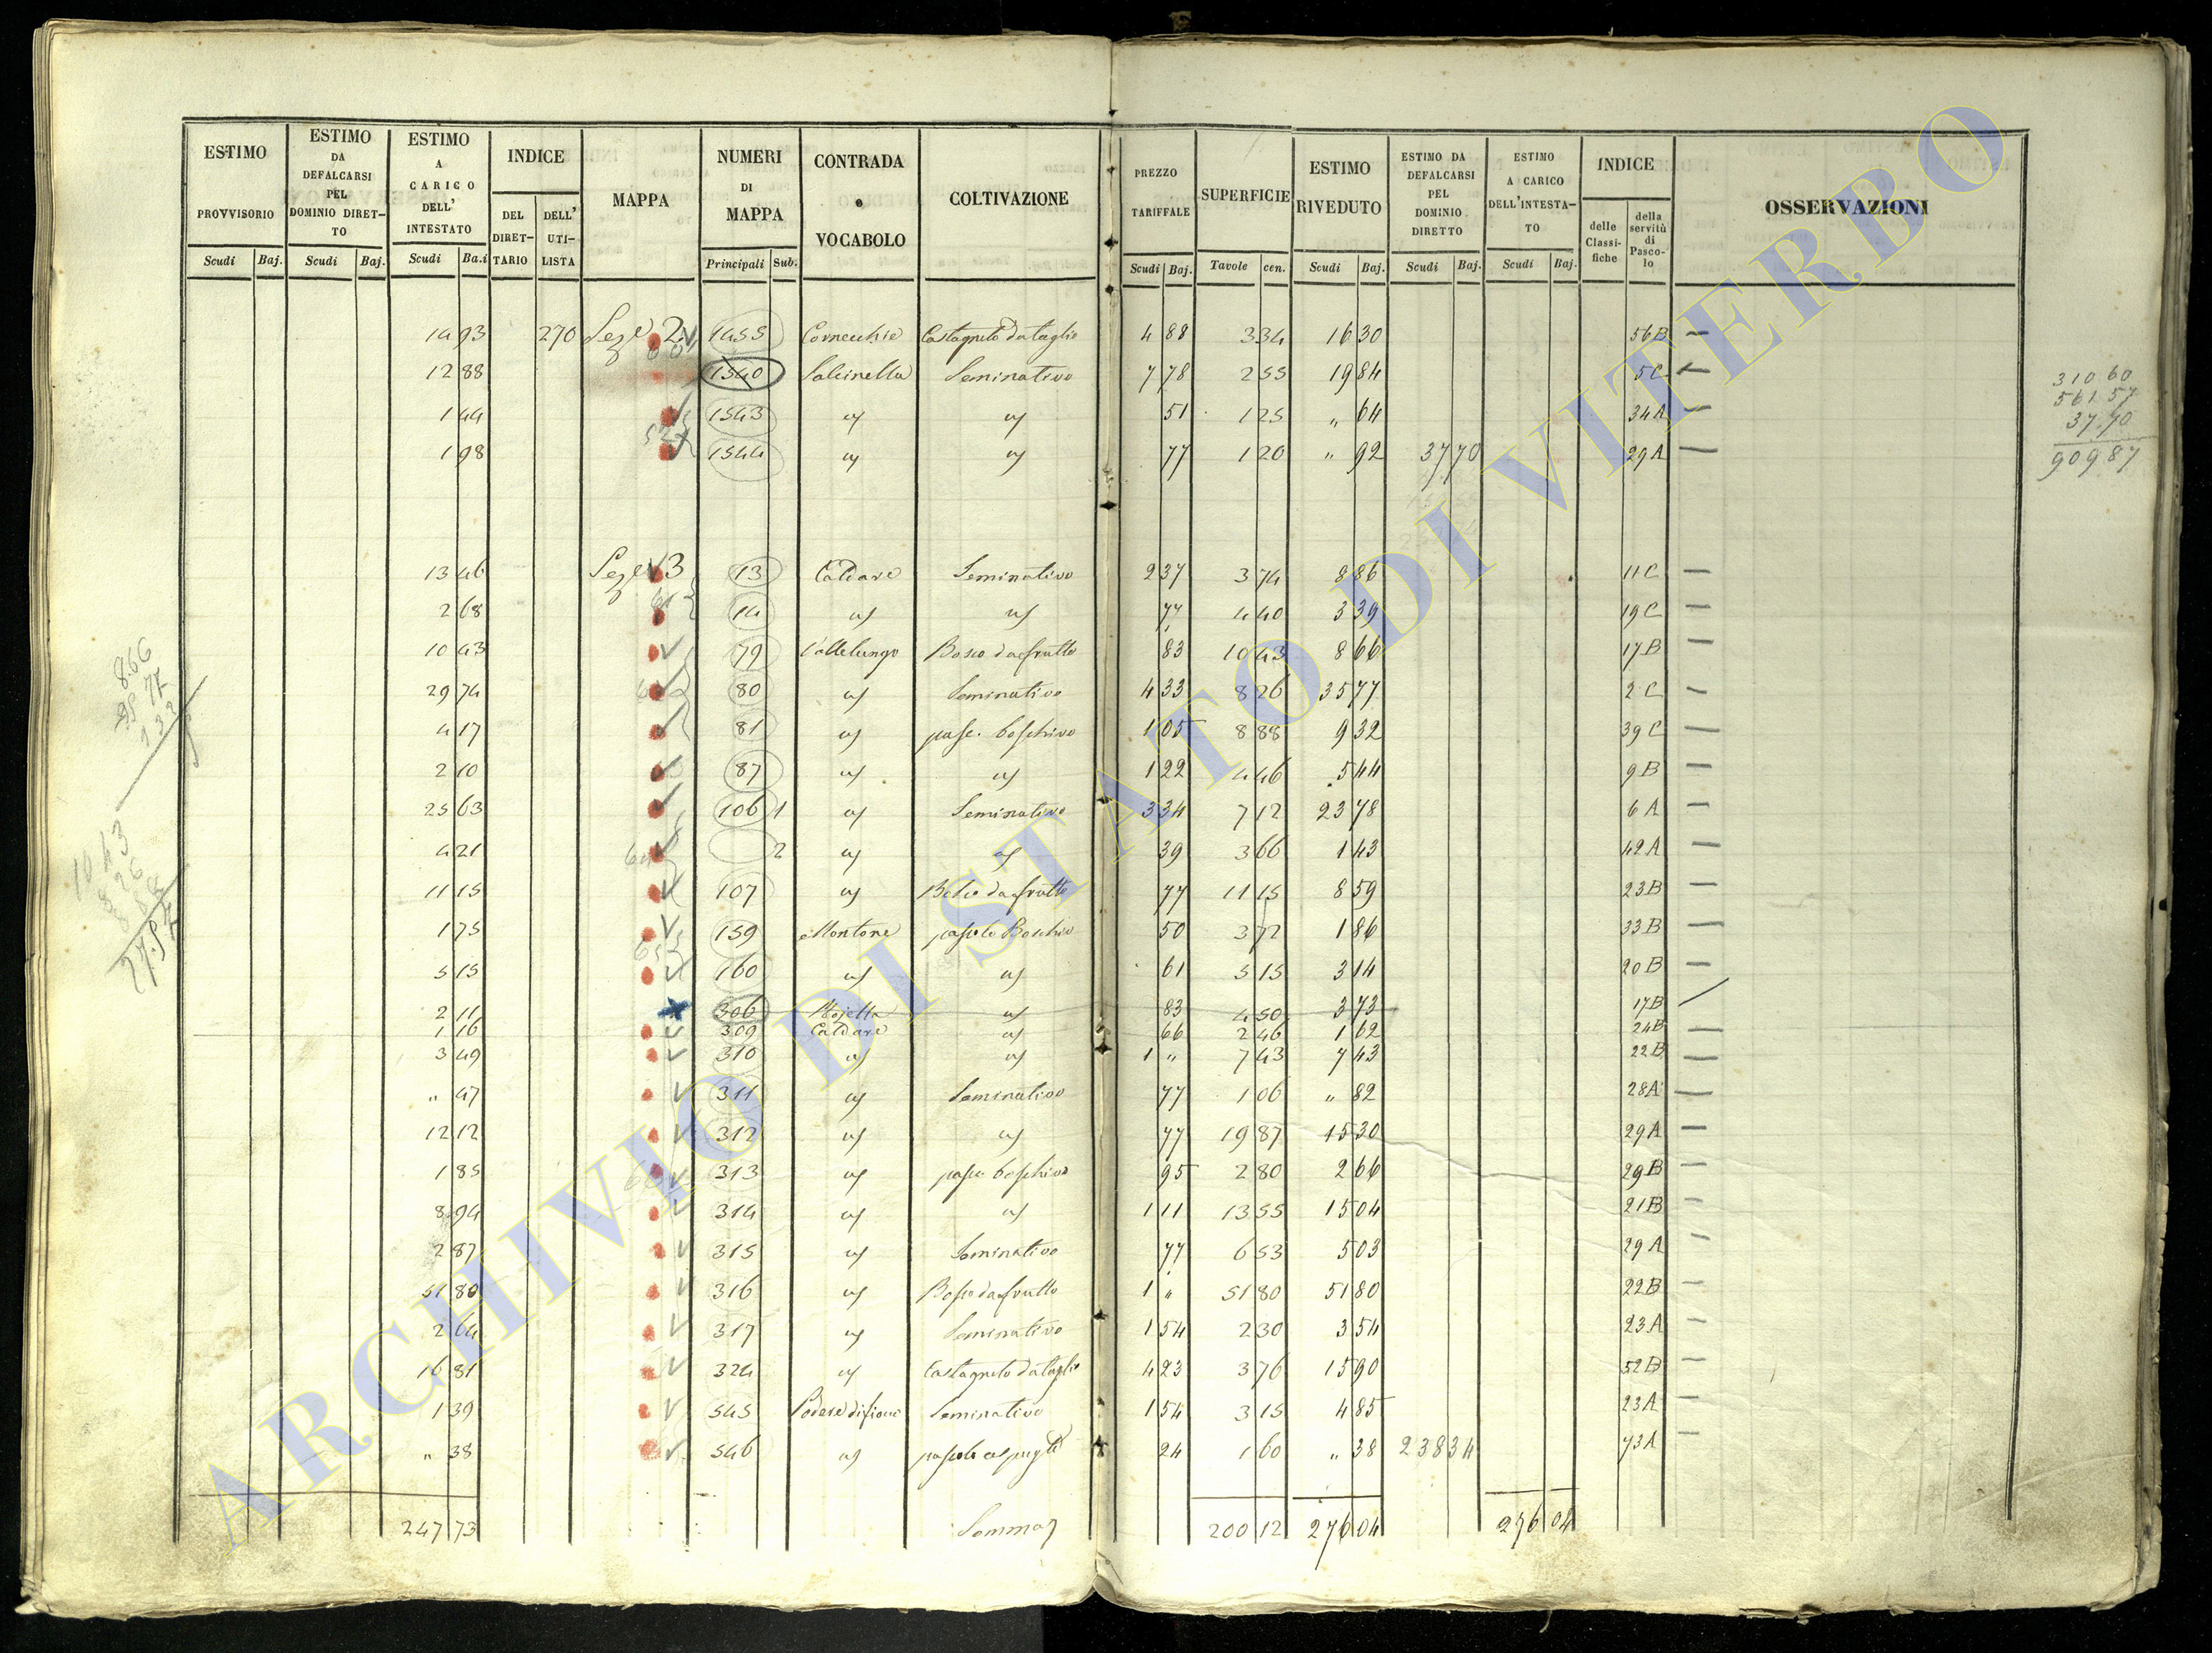 ESTIMO PROVVISORIO Scudi Baj. | ESTIMO DA DEFALCARSI PEL DOMINIO DIRETTO Scudi Baj. | ESTIMO A CARICO DELL' INTESTATO Scudi Ba.i | INDICE DEL DIRETTARIO DELL' UTILISTA | MAPPA | NUMERI DI MAPPA Principali Sub. | CONTRADA o VOCABOLO | COLTIVAZIONE | PREZZO TARIFFALE Scudi Baj. | SUPERFICIE Tavole cen. | ESTIMO RIVEDUTO Scudi Baj. | ESTIMO DA DEFALCARSI PEL DOMINIO DIRETTO Scudi Baj. | ESTIMO A CARICO DELL'INTESTATO Scudi Baj. | INDICE delle Classifiche della servitù di Pascolo | OSSERVAZIONI
14 93 270 Sez.e 2 1455 Cornecchie Castagneto da taglio 4 88 3 34 16 30 56B —
12 88 1540 Salcinella Seminativo 7 78 2 55 19 84 5C —
1 44 1543 " " 51 1 25 " 64 34A —
1 98 1544 " " 77 1 20 " 92 37 70 29A —
310 60
561 57
37 70
909 87
13 46 Sez.e 3 13 Caldare Seminativo 2 37 3 74 8 86 11C —
2 68 14 " " 77 4 40 3 39 19C —
10 43 79 Vallelunga Bosco da frutto 83 10 43 8 66 17B —
29 74 80 " Seminativo 4 33 8 26 35 77 2C —
4 17 81 " pasc. boschivo 1 05 8 88 9 32 39C —
2 10 87 " " 1 22 4 46 5 44 9B —
25 63 106 1 " Seminativo 3 34 7 12 23 78 6A —
4 21 2 " " 39 3 66 1 43 42A —
11 15 107 " Bosco da frutto 77 11 15 8 59 23B —
1 75 159 Montone pascolo Boschivo 50 3 72 1 86 33B —
5 15 160 " " 61 5 15 3 14 20B —
2 11 306 Mojella " 83 4 50 3 73 17B
1 16 309 Caldare " 66 2 46 1 62 24B
3 49 310 " " 1 " 7 43 7 43 22B —
" 47 311 " Seminativo 77 1 06 " 82 28A —
12 12 312 " " 77 19 87 15 30 29A —
1 85 313 " pasc. boschivo 95 2 80 2 66 29B —
8 94 314 " " 1 11 13 55 15 04 21B —
2 87 315 " Seminativo 77 6 53 5 03 29A —
51 80 316 " Bosco da frutto 1 " 51 80 51 80 22B —
2 64 317 " Seminativo 1 54 2 30 3 54 23A —
16 81 324 " Castagneto da taglio 4 23 3 76 15 90 52B —
1 39 545 Seminativo 1 54 3 15 4 85 23A —
" 38 546 " pascolo 24 1 60 " 38 238 34 73A —
247 73 Somma 200 12 276 04 276 04
8.66
10 43
8 26
ARCHIVIO DI STATO DI VITERBO